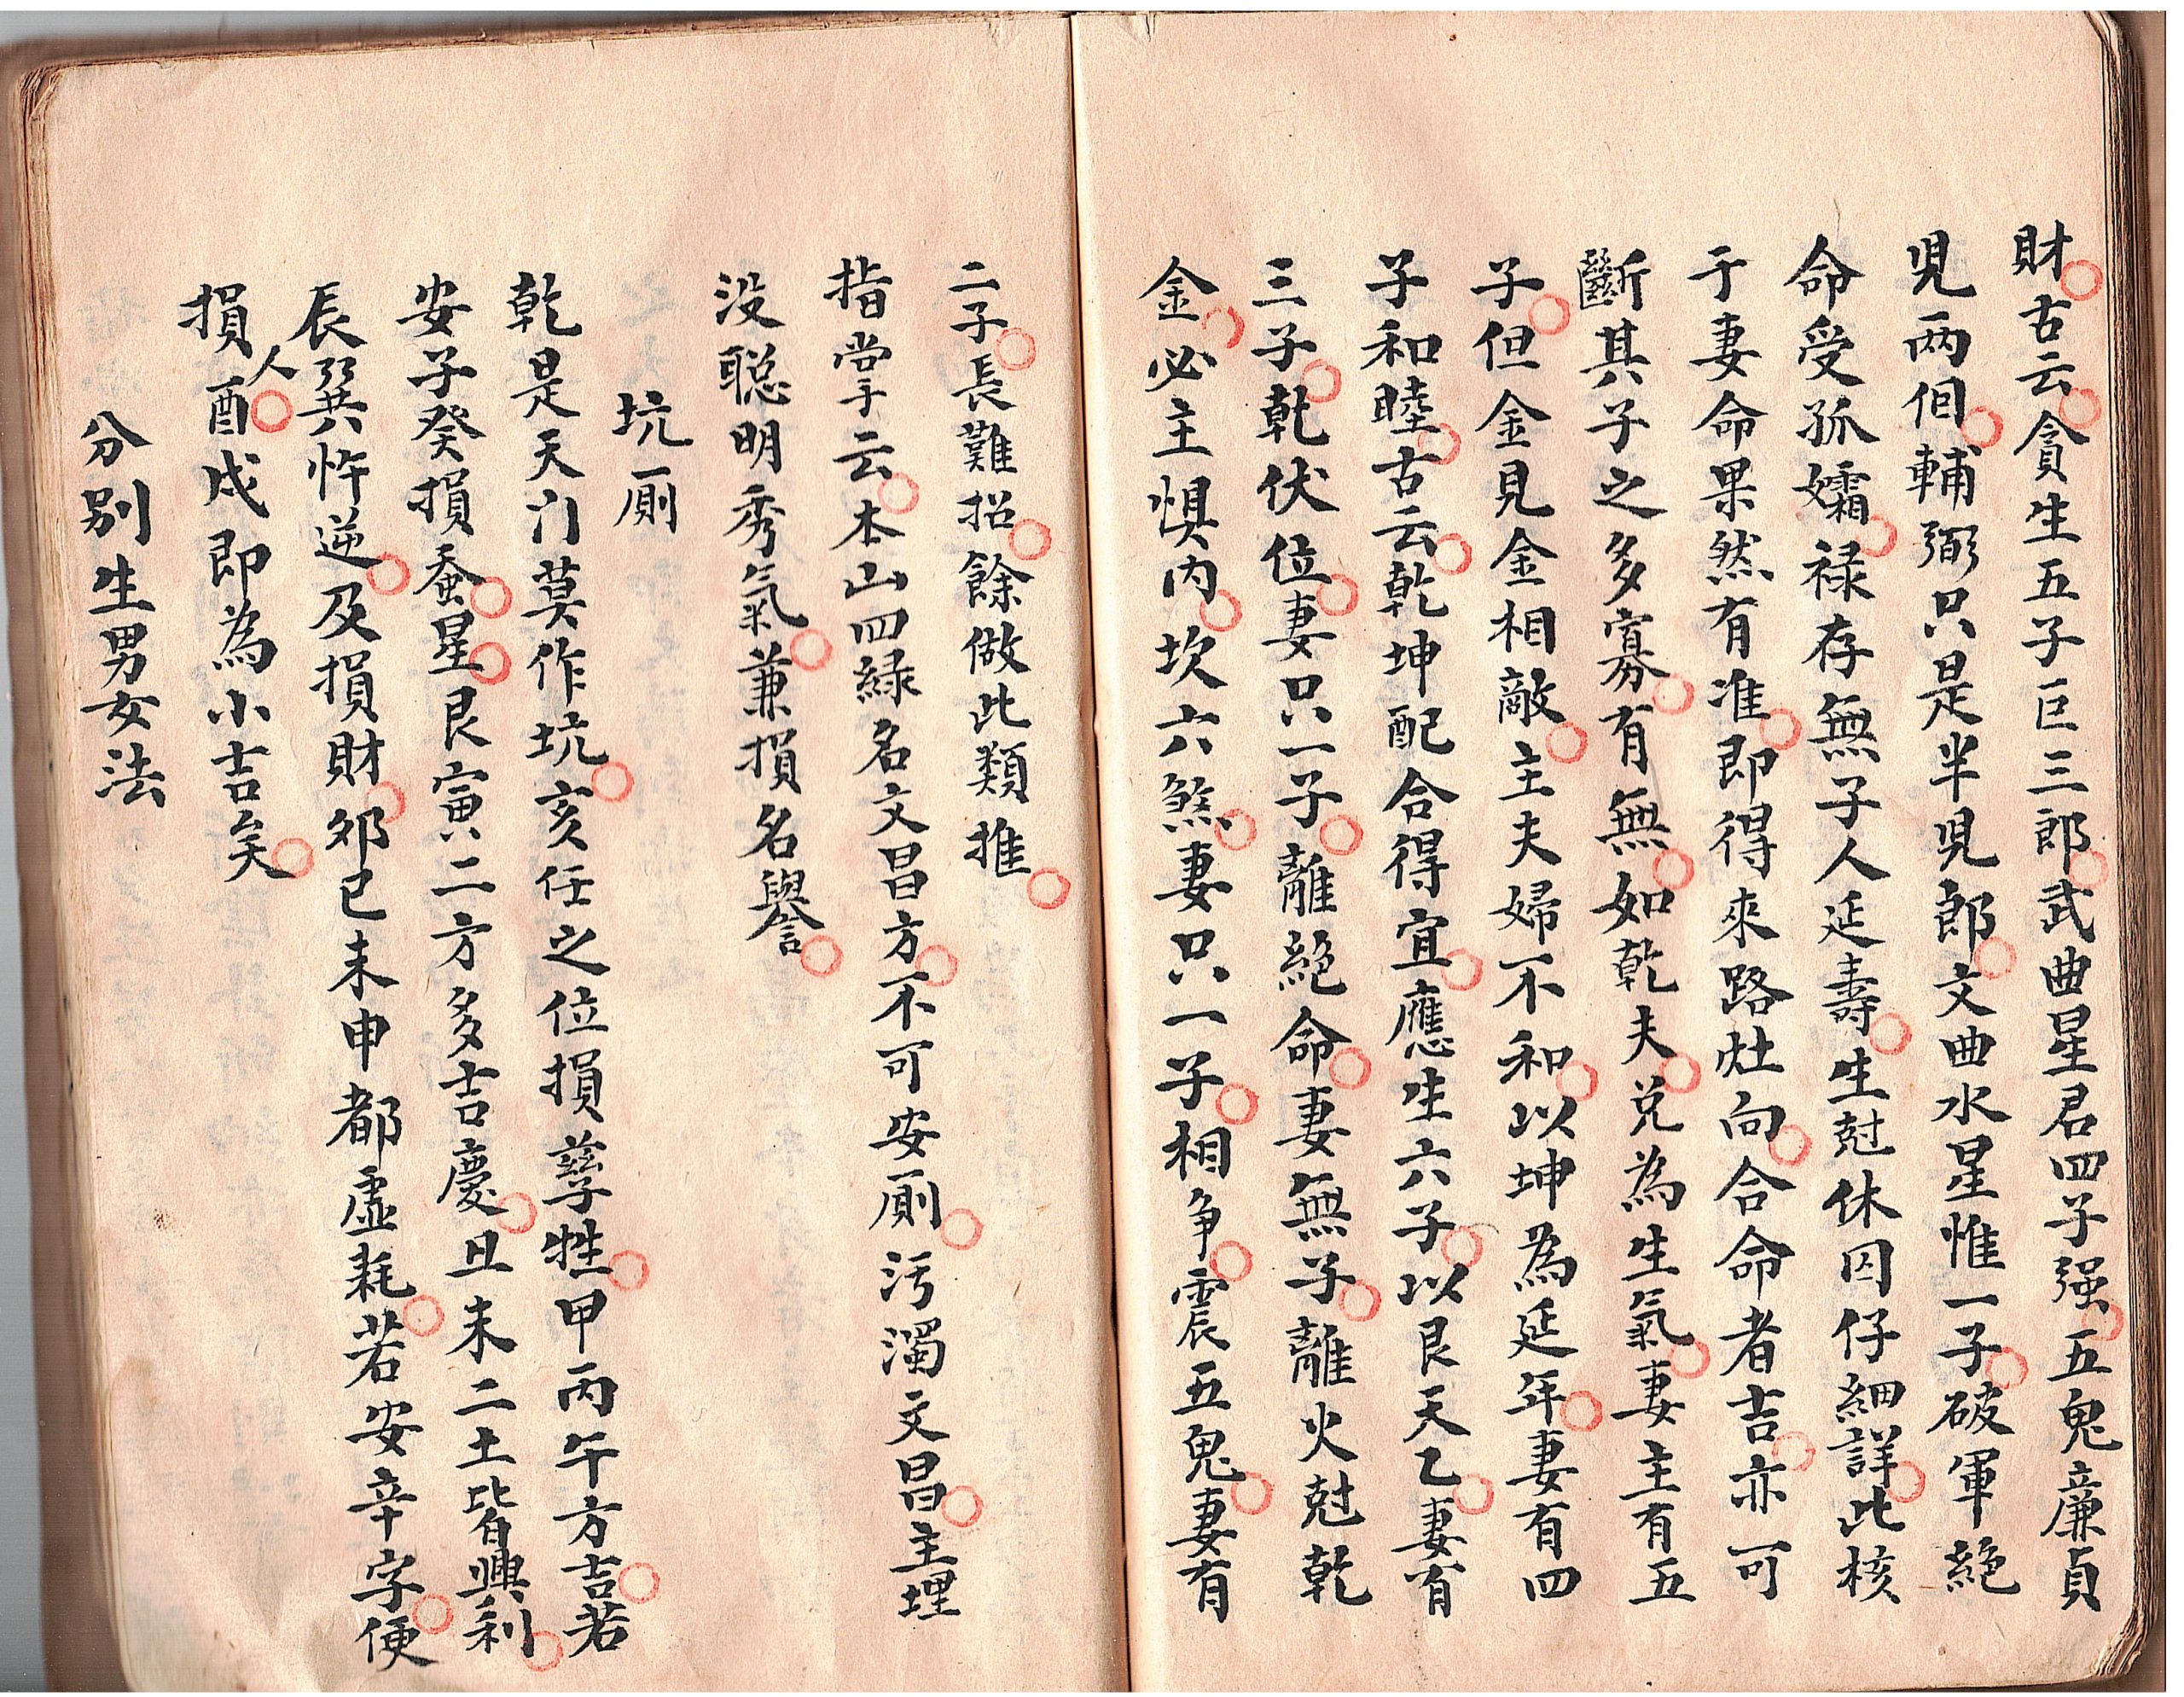 財古云貪生五子巨三郎武曲星君四子强五鬼廉貞
児两佪輔弼只是半児郎文曲水星惟一子破軍絕
命受孤孀禄存無子人延壽生尅休囚仔細詳此核
于妻命果然有准即得來路灶向合命者吉亦可
斷其子之多寡有無如乾夫兑為生氣妻主有五
子但金見金相敵主夫婦不和以坤為延年妻有四
子和睦古云乾坤配合得宜應生六子以艮天乙妻有
三子乾伏位妻只一子離絕命妻無子離火尅乾
金必主惧内坎六煞妻只一子相争震五鬼妻有
二子長難招餘做此類推
指掌云本山四緑名文昌方不可安厠污濁文昌主埋
没聪明秀氣兼損名譽
坑厠
乾是天门莫作坑亥任之位損孳牲甲丙午方吉若
安子癸損蚕星艮寅二方多吉慶丑未二土皆興利
辰巽忤逆及損財夘巳未申都虛耗若安辛字便
損人酉戌即為小吉矣
分别生男女法